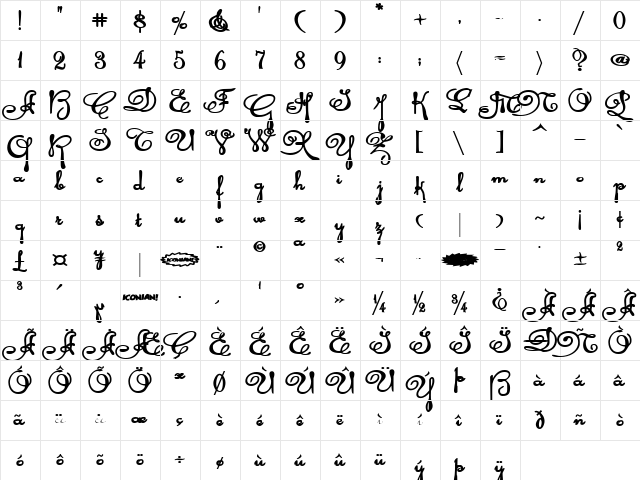 ! " # $ % & ' ( ) * + , - . / 0
1 2 3 4 5 6 7 8 9 : ; < = > ? @
A B C D E F G H I J K L M N O P
Q R S T U V W X Y Z [ \ ] ^ _ `
a b c d e f g h i j k l m n o p
q r s t u v w x y z ( | ) ~ ¡ ¢
£ ¤ ¥ | ICONIAN! ¨ © ª « ¬ - ¯ ° ± ²
³ ´ µ ICONIAN! · ¸ ¹ º » ¼ ½ ¾ ¿ À Á Â
Ã Ä Å Æ Ç È É Ê Ë Ì Í Î Ï Ð Ñ Ò
Ó Ô Õ Ö × Ø Ù Ú Û Ü Ý Þ ß à á â
ã ä å æ ç è é ê ë ì í î ï ð ñ ò
ó ô õ ö ÷ ø ù ú û ü ý þ ÿ